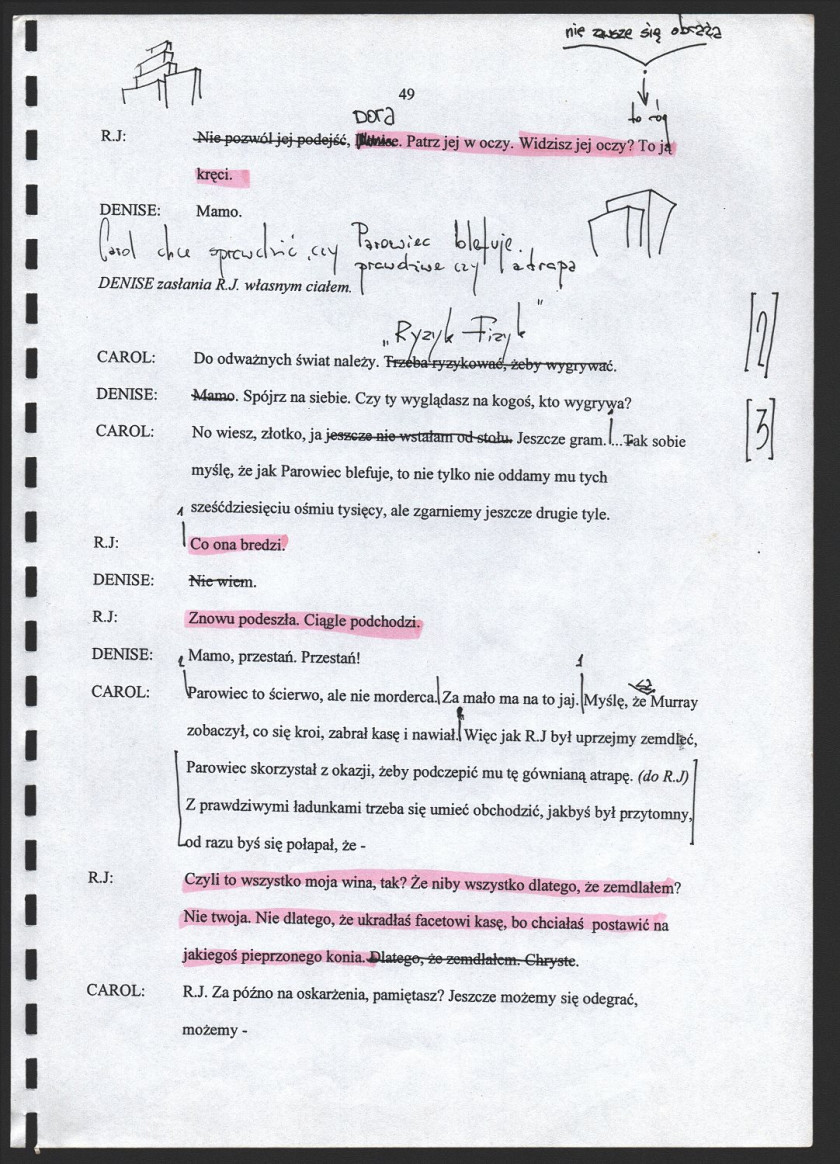 nie zawsze się obraża
49
Dora
to róg
R.J: Nie pozwól jej podejść, Denise. Patrz jej w oczy. Widzisz jej oczy? To ją
kręci.
DENISE: Mamo.
Carol chce sprawdzić czy Parowiec blefuje.
prawdziwe czy atrapa
DENISE zasłania R.J. własnym ciałem.
„Ryzyk Fizyk"
[2]
CAROL: Do odważnych świat należy. Trzeba ryzykować, żeby wygrywać.
DENISE: Mamo. Spójrz na siebie. Czy ty wyglądasz na kogoś, kto wygrywa?
[3]
CAROL: No wiesz, złotko, ja jeszcze nie wstałam od stołu. Jeszcze gram. ...Tak sobie
myślę, że jak Parowiec blefuje, to nie tylko nie oddamy mu tych
sześćdziesięciu ośmiu tysięcy, ale zgarniemy jeszcze drugie tyle.
R.J: Co ona bredzi.
DENISE: Nie wiem.
R.J: Znowu podeszła. Ciągle podchodzi.
DENISE: Mamo, przestań. Przestań!
CAROL: Parowiec to ścierwo, ale nie morderca. Za mało ma na to jaj. Myślę, że Murray
zobaczył, co się kroi, zabrał kasę i nawiał. Więc jak R.J był uprzejmy zemdleć,
Parowiec skorzystał z okazji, żeby podczepić mu tę gównianą atrapę. (do R.J)
Z prawdziwymi ładunkami trzeba się umieć obchodzić, jakbyś był przytomny,
od razu byś się połapał, że -
R.J: Czyli to wszystko moja wina, tak? Że niby wszystko dlatego, że zemdlałem?
Nie twoja. Nie dlatego, że ukradłaś facetowi kasę, bo chciałaś postawić na
jakiegoś pieprzonego konia. Dlatego, że zemdlałem. Chryste.
CAROL: R.J. Za późno na oskarżenia, pamiętasz? Jeszcze możemy się odegrać,
możemy -